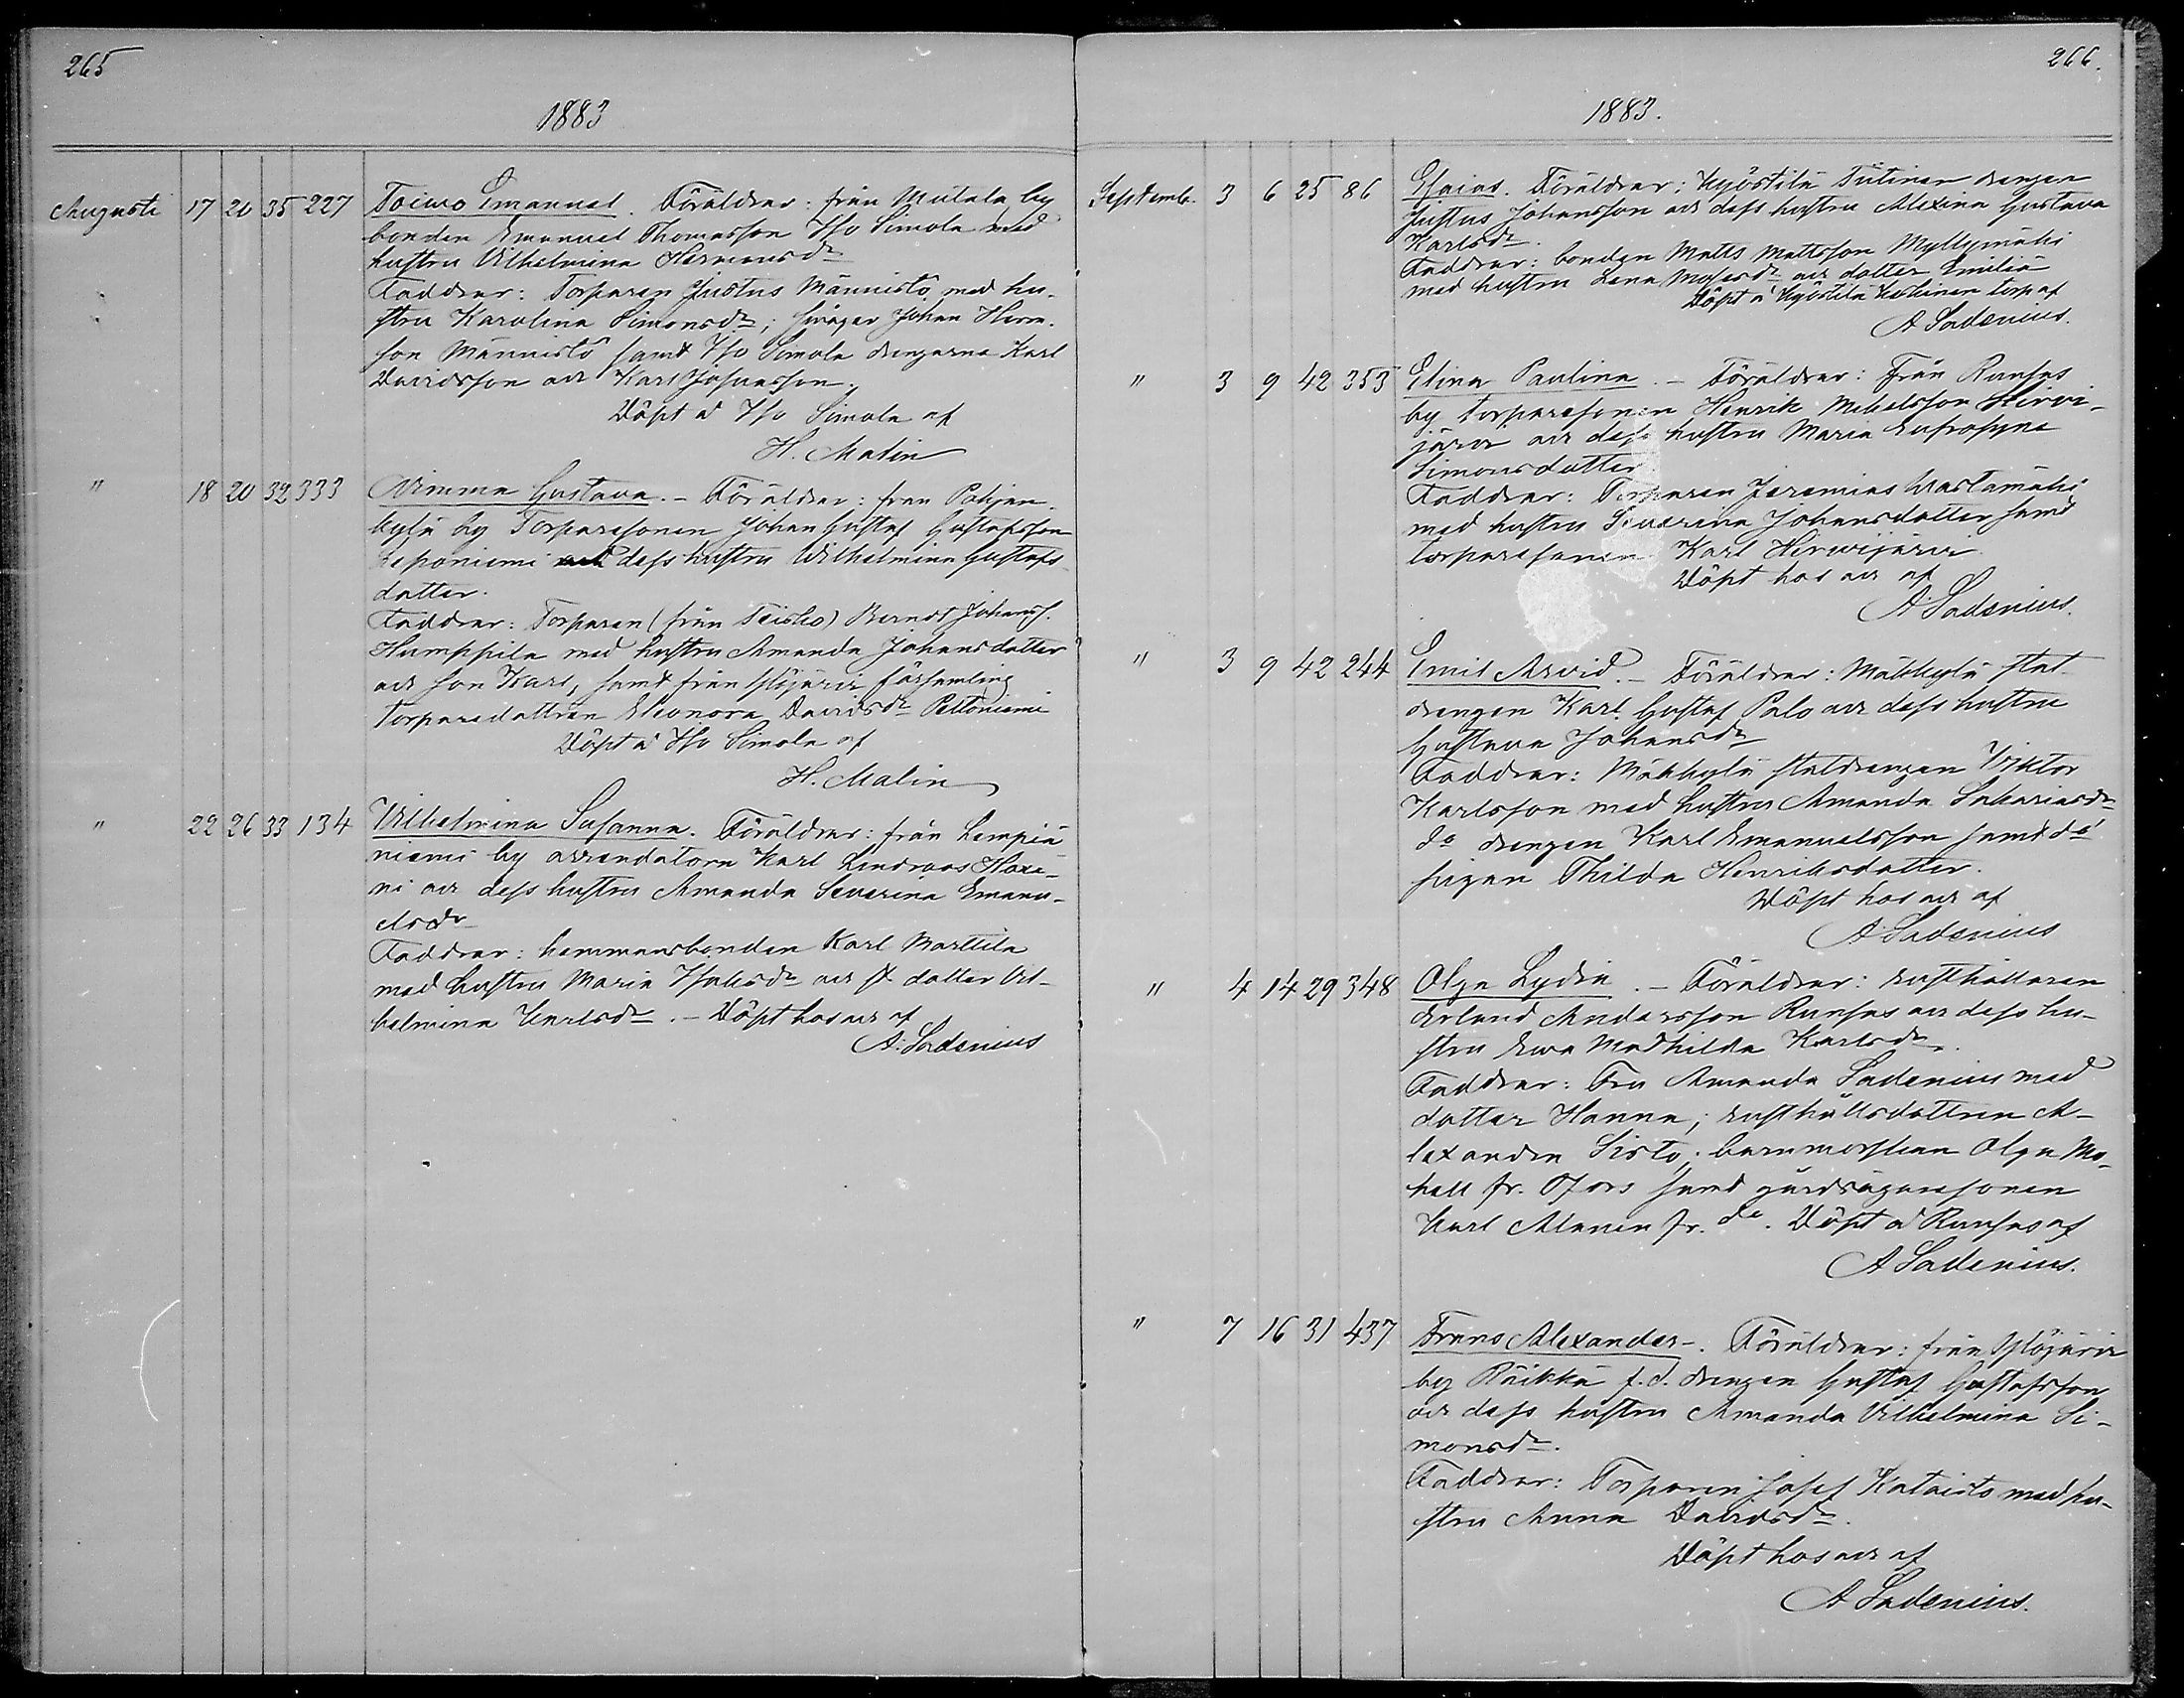 265
1883
Augusti 17 20 35 227 Toiwo Emanuel. Föräldrar: från Mutala by
bonden Emanuel Thomasson Iso Simola med
hustru Vilhelmina Hermansdr
Faddrar: Torparen Justus Männistö med hu-
stru Karolina Simonsdr; svåger Johan Herm.
son Männistö samt Iso Simola drengarne Karl
Davidsson och Karl Josuasson.
Döpt å Iso Simola af
H. Malin
" 18 20 32 333 Wimma Gustava. - Föräldrar: från Pohjan-
kylä by Torparesonen Johan Gustaf Gustafsson
Leponiemi och dess hustru Wilhelmina Gustafs-
dotter.
Faddrar: Torparen (från Teisko) Berndt Johanss.
Humppila med hustru Amanda Johansdotter
och son Karl, samt från Ylöjärvi församling
Torparedottren Eleonora Davidsdr Peltoniemi
Döpt å Iso Simola af
H. Malin
" 22 26 33 134 Vilhelmina Susanna. Föräldrar: från Lempiä
niemi by arrendatorn Karl Lindroos Haxe-
ni och dess hustru Amanda Severina Emanu-
elsdr
Faddrar: hemmansbonden Karl Marttila
med hustru Maria Isaksdr och dotter Vil-
helmina Karlsdr. - Döpt hos oss af
A. Sadenius
266.
1883.
Septemb. 3 6 25 86 Esaias. Föräldrar: Kyöstilä Tütinen drengen
Justus Johansson och dess hustru Alexina Gustava
Karlsdr.
Faddrar: bonden Matts Mattsson Myllymäki
med hustru Lena Mosesdr och dotter Emilia
Döpt å Kyöstilä Koskinen torp af
A Sadenius.
" 3 9 42 353 Elina Paulina. - Föräldrar: Från Runsas
by torparesonen Henrik Mikelsson Hirvi-
järvi och dess hustru Maria Eufrosyna
Simonsdotter
Faddrar: Torparen Jeremias Wastamäki
med hustru Severina Johansdotter samt
torparesonen Karl Hirwijärvi.
Döpt hos oss af
A. Sadenius.
" 3 9 42 244 Emil Arvid. - Föräldrar: Mäkkylä stat-
drengen Karl Gustaf Palo och dess hustru
Gustava Johansdr
Faddrar: Mäkkylä statdrengen Viktor
Karlsson med hustru Amanda Sakariasdr
do drengen Karl Emanuelsson samt do
pigan Thilda Henriksdotter.
Döpt hos oss af
A. Sadenius
" 4 14 29 348 Olga Lydia. - Föräldrar: rusthållaren
Erland Andersson Runsas och dess hu-
stru Ewa Mathilda Karlsdr.
Faddrar: Fru Amanda Sadenius med
dotter Hanna; rusthållsdottren A-
lexandra Sisto; barnmorskan Olga Mo-
hell fr. Tfors samt gårdsägaresonen
Karl Alanen fr. do. Döpt å Runsas af
A Sadenius.
" 7 16 31 437 Frans Alexander-. Föräldrar: från Ylöjärvi
by Räikkä f. d. drengen Gustaf Gustafsson
och dess hustru Amanda Vilhelmina Si-
monsdr.
Faddrar: Torparen Josef Kataisto med hu-
stru Anna Davidsdr.
Döpt hos oss af
A Sadenius.